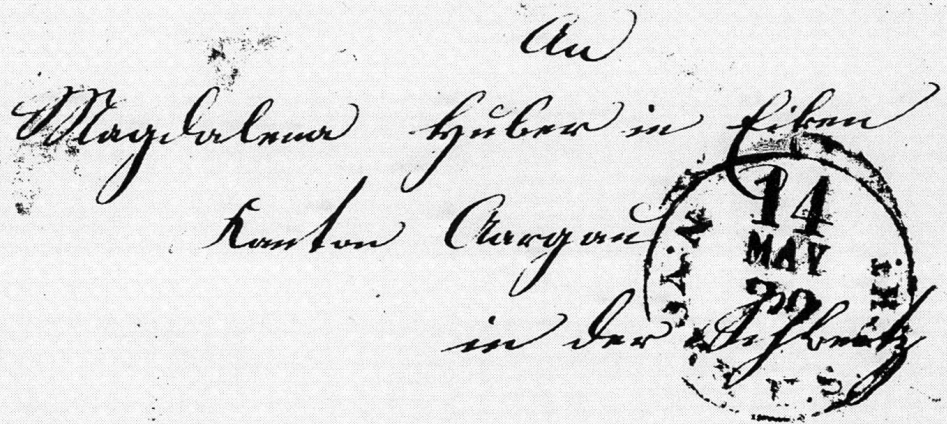 An
Magdalena Huber in Eiken
Kanton Aargau
in der Schweitz
14
MAY